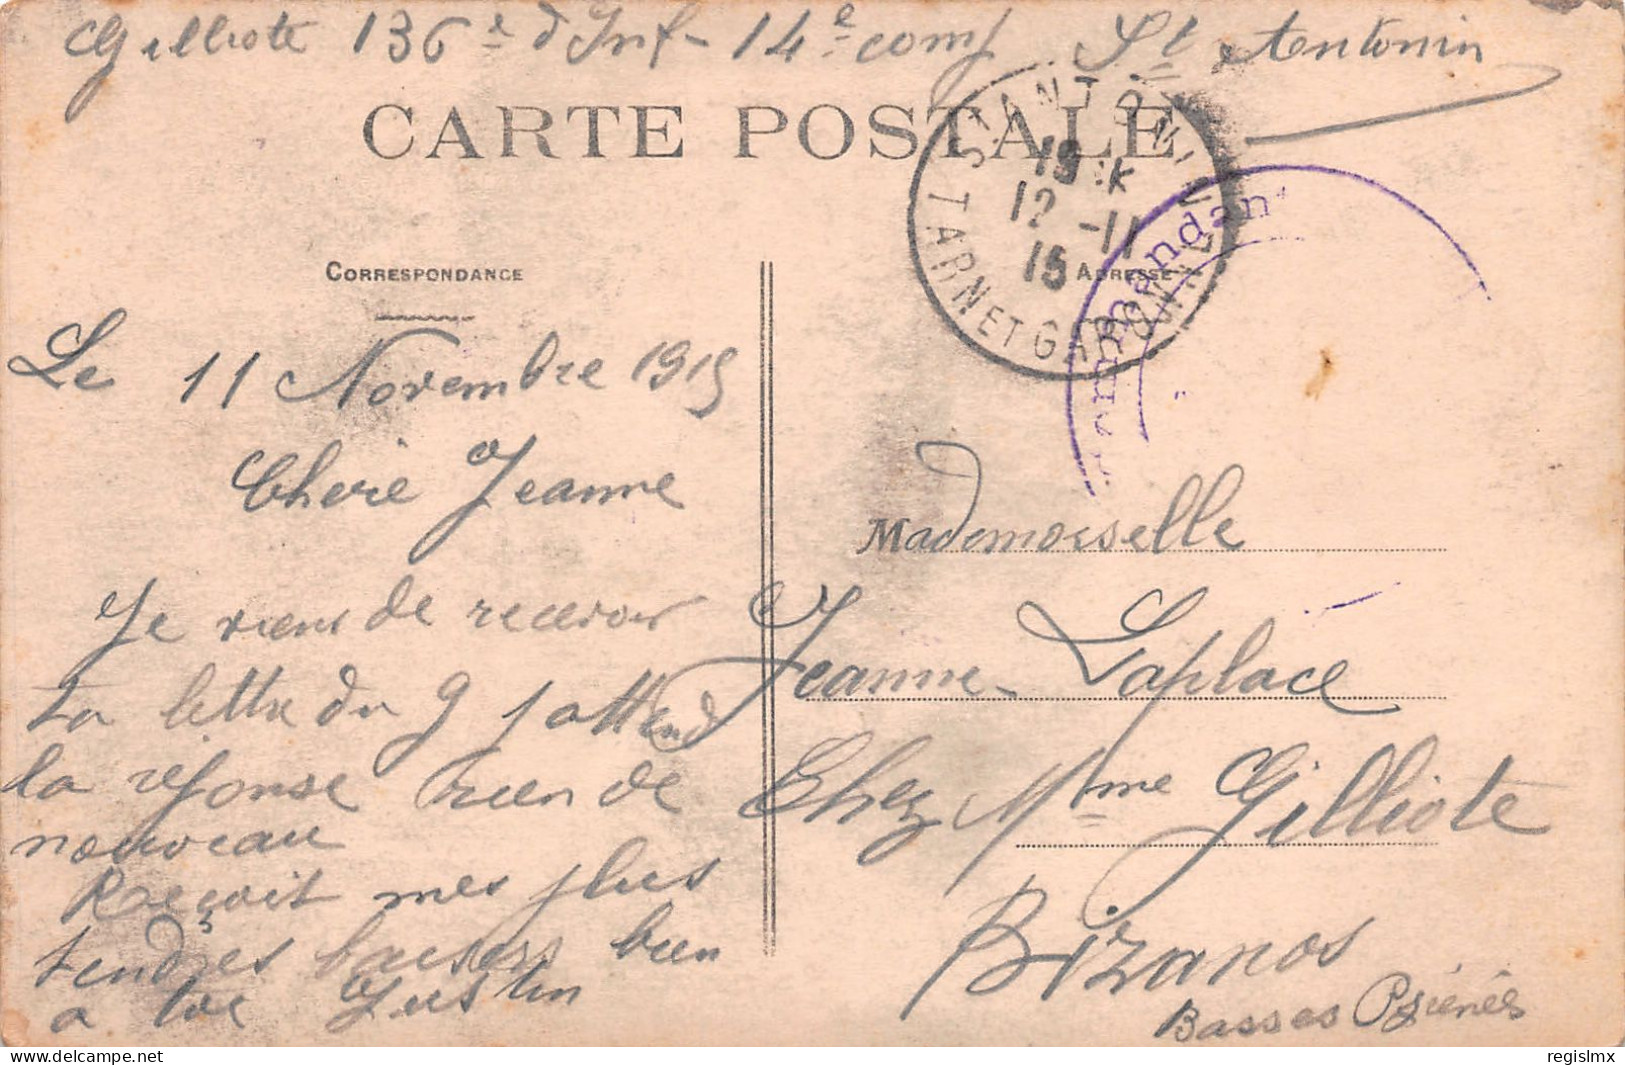 Gilliote 136e d'Inf - 14e comp St Antonin
CARTE POSTALE
ST ANTONIN
TARN ET GARONNE
19 K
12 -11
15
ommandant
CORRESPONDANCE
ADRESSE
Le 11 Novembre 1915
Cherie Jeanne
Je viens de recevoir
ta lettre du 9 j attend
la réponse rien de
nouveau
Reçoit mes plus
tendres baisers bien
a toi Justin
Mademoiselle
Jeanne Laplace
Chez Mme Gilliote
Bizanos
Basses Pyrénées
regislmx
delcampe.net